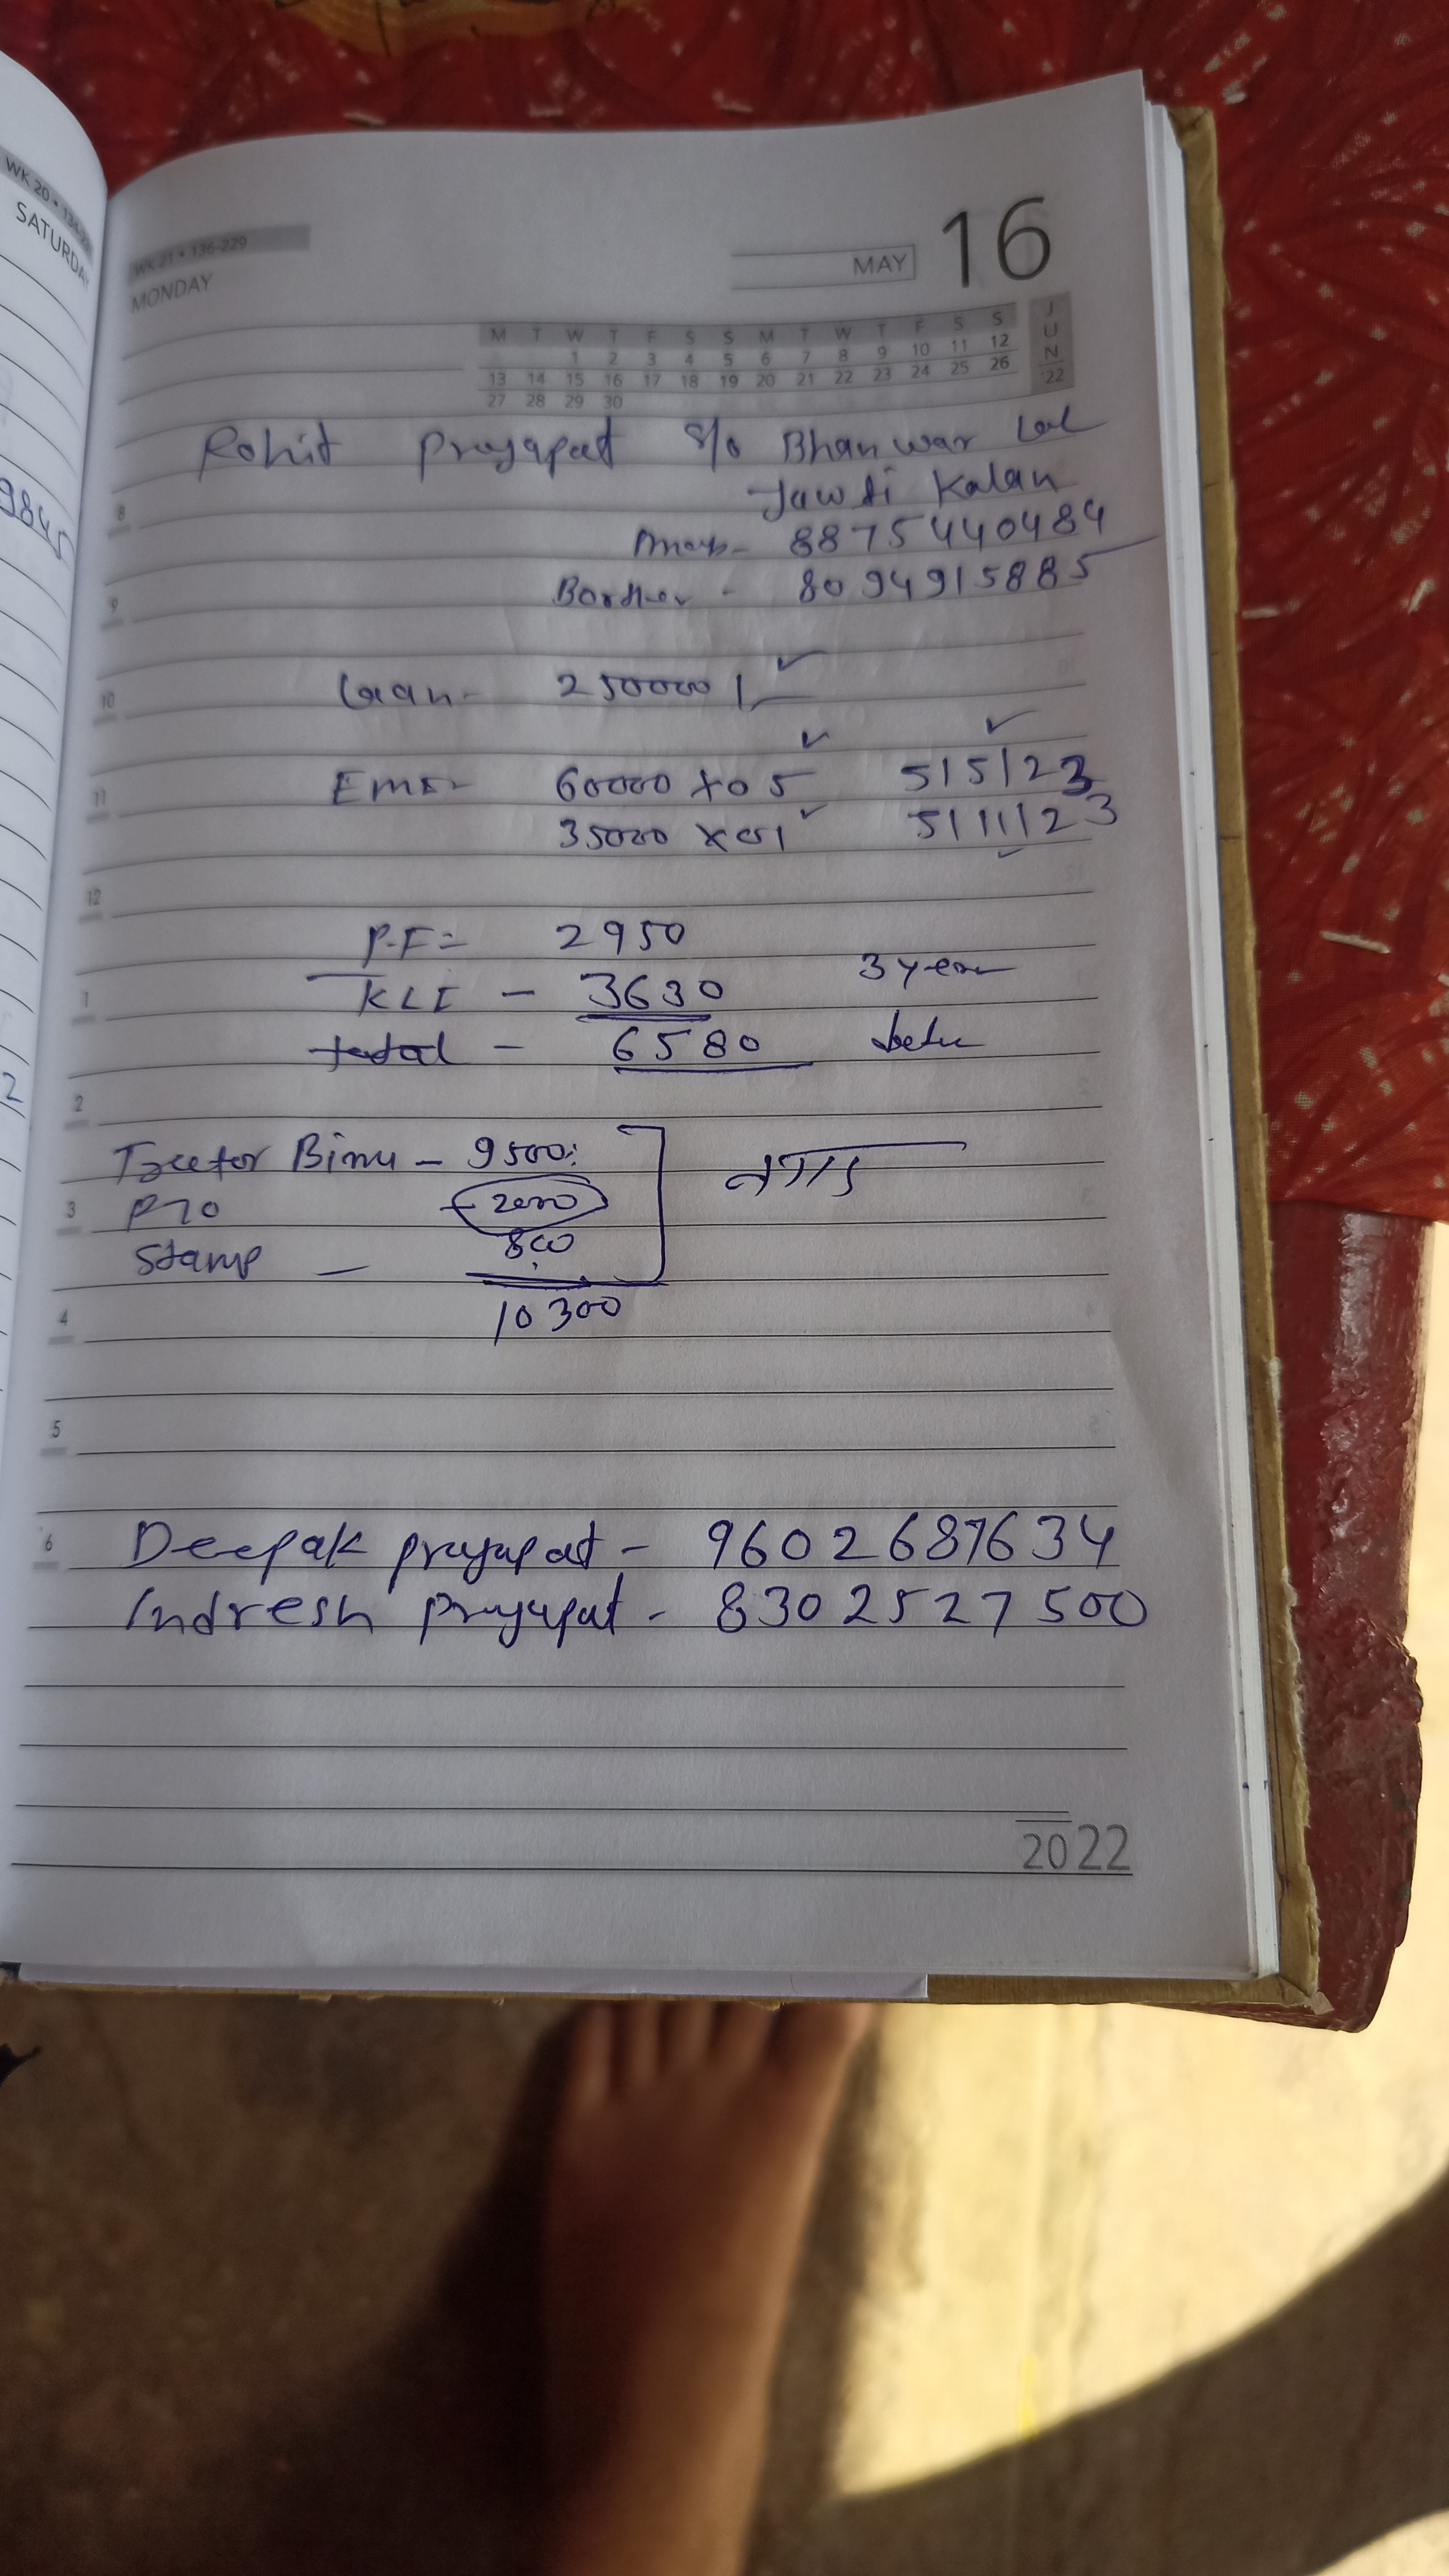 WK 20 • 134-231
SATURDAY
9845
2
WK 21 • 136-229
MONDAY
MAY 16
M T W T F S S M T W T F S S
1 2 3 4 5 6 7 8 9 10 11 12
13 14 15 16 17 18 19 20 21 22 23 24 25 26
27 28 29 30
JUN '22
Rohit Prajapat S/o Bhanwar Lal
Kalan
8875440484
8
Borther - 8094915885
9
Loan - 250000/-
10
EMI - 60000 x 05 5/5/23
11
35000 x 01 5/11/23
12
P.F = 2950
KLI - 3630 3 year
1
total - 6580
2
Trector Bima - 9500
3
zero
Stamp - 800
10300
4
5
6
Deepak prajapat - 9602687634
Indresh prajapat - 8302527500
2022